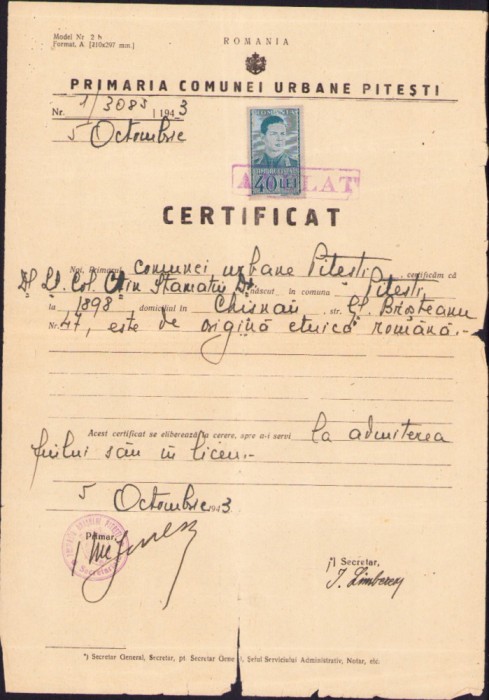 Model Nr 2 b
Format. A [210x297 mm.]
ROMANIA
PRIMARIA COMUNEI URBANE PITEȘTI
Nr. 1/3083 | 1943
5 Octombrie
ROMANIA
40 LEI
ANULAT
CERTIFICAT
Noi, Primarul comunei urbane Pitești, certificăm că
Dl Lt. Col. Stamatiu născut în comuna Pitești,
la 1898, domiciliul în Chisnau, str. Gl. Broșteanu
Nr. 47, este de origină etnică română.-
Acest certificat se eliberează la cerere, spre a-i servi la admiterea
fiului său în liceu.-
5 Octombrie 1943
Primar,
*) Secretar,
*) Secretar General, Secretar, pt Secretar General, Șeful Serviciului Administrativ, Notar, etc.